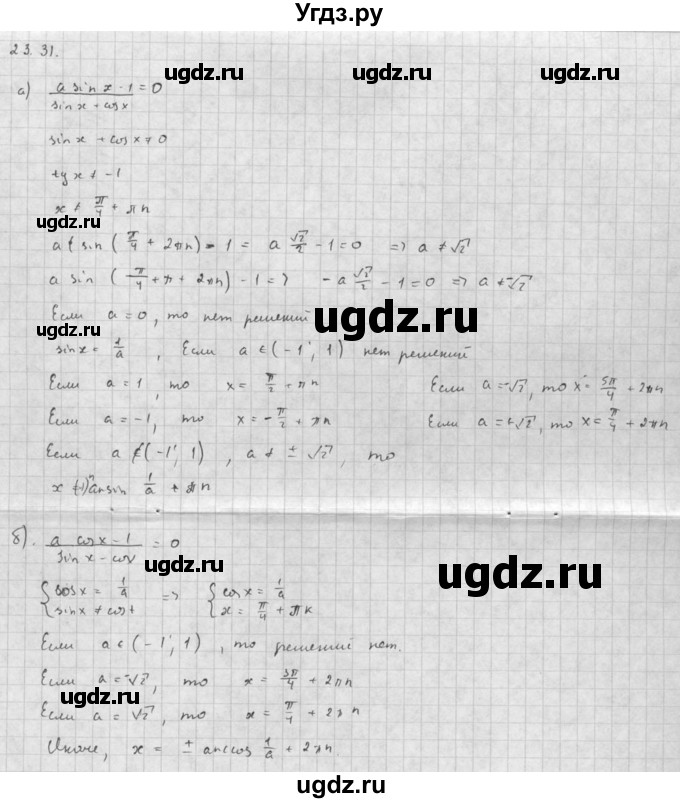 Угдз.ру
23.31.
ugdz.ru ugdz.ru ugdz.ru
а) a sin x - 1 / sin x + cos x = 0
sin x + cos x ≠ 0
tg x ≠ -1
x ≠ π/4 + πn
ugdz.ru
a sin (π/4 + 2πn) - 1 = a √2/2 - 1 = 0 => a ≠ √2
a sin (π/4 + π + 2πn) - 1 => -a √2/2 - 1 = 0 => a ≠ -√2
Если a = 0, то нет решений
ugdz.ru
sin x = 1/a , Если a ∈ (-1; 1) нет решений
Если a = 1, то x = π/2 + πn Если a = -√2, то x = 5π/4 + 2πn
Если a = -1, то x = -π/2 + πn Если a = +√2, то x = π/4 + 2πn
Если a ∉ (-1; 1), a ≠ ± √2, то
ugdz.ru
x (-1)ⁿ arcsin 1/a + πn
б). a cos x - 1 / sin x - cos x = 0
ugdz.ru
{ cos x = 1/a => { cos x = 1/a
{ sin x ≠ cos x { x = π/4 + πk
Если a ∈ (-1; 1), то решений нет.
Если a = -√2, то x = 3π/4 + 2πn
ugdz.ru
Если a = √2, то x = π/4 + 2πn
Иначе, x = ± arccos 1/a + 2πn
ugdz.ru ugdz.ru
ugdz.ru